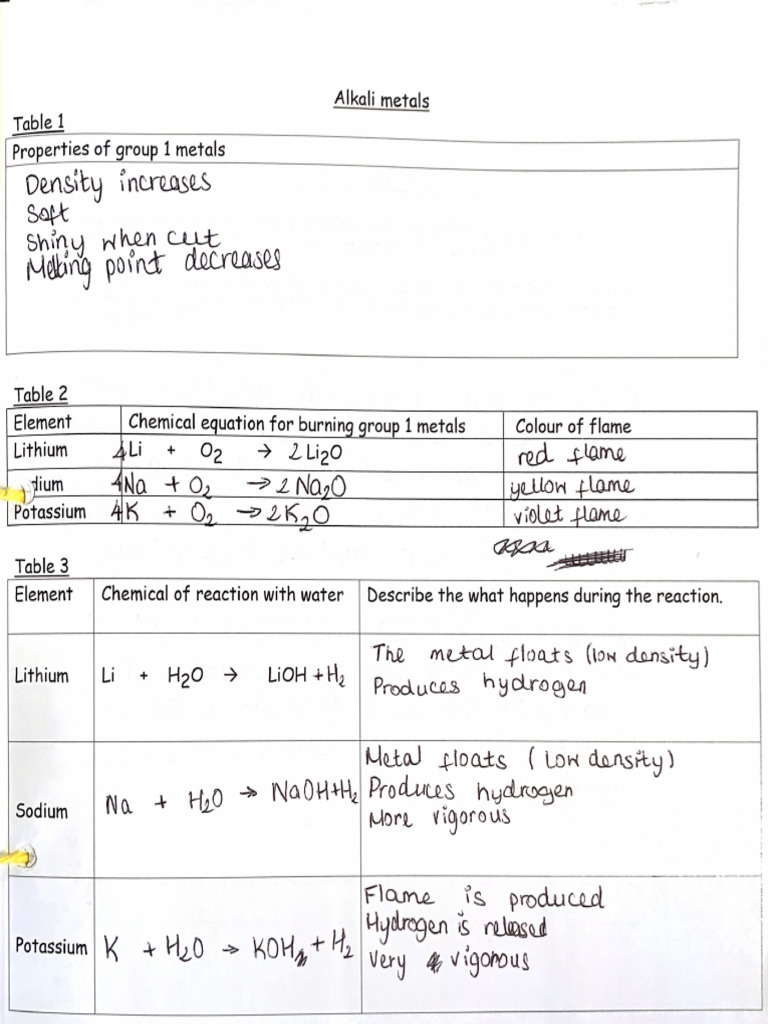 Alkali metals
Table 1
Properties of group 1 metals
Density increases
Soft
Shiny when cut
Melting point decreases
Table 2
Element Chemical equation for burning group 1 metals Colour of flame
Lithium 4Li + O2 → 2Li2O red flame
dium 4Na + O2 → 2Na2O yellow flame
Potassium 4K + O2 → 2K2O violet flame
Table 3
Element Chemical of reaction with water Describe the what happens during the reaction.
Lithium Li + H2O → LiOH + H2 The metal floats (low density)
Produces hydrogen
Sodium Na + H2O → NaOH + H2 Metal floats (low density)
Produces hydrogen
More vigorous
Potassium K + H2O → KOH + H2 Flame is produced
Hydrogen is released
Very vigorous